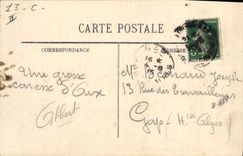 13-C-
CARTE POSTALE
CORRESPONDANCE
ADRESSE
Une grosse
caresse d'Aux
Albert
Joseph
13 Rue des Travailleurs
Gap - Htes Alpes